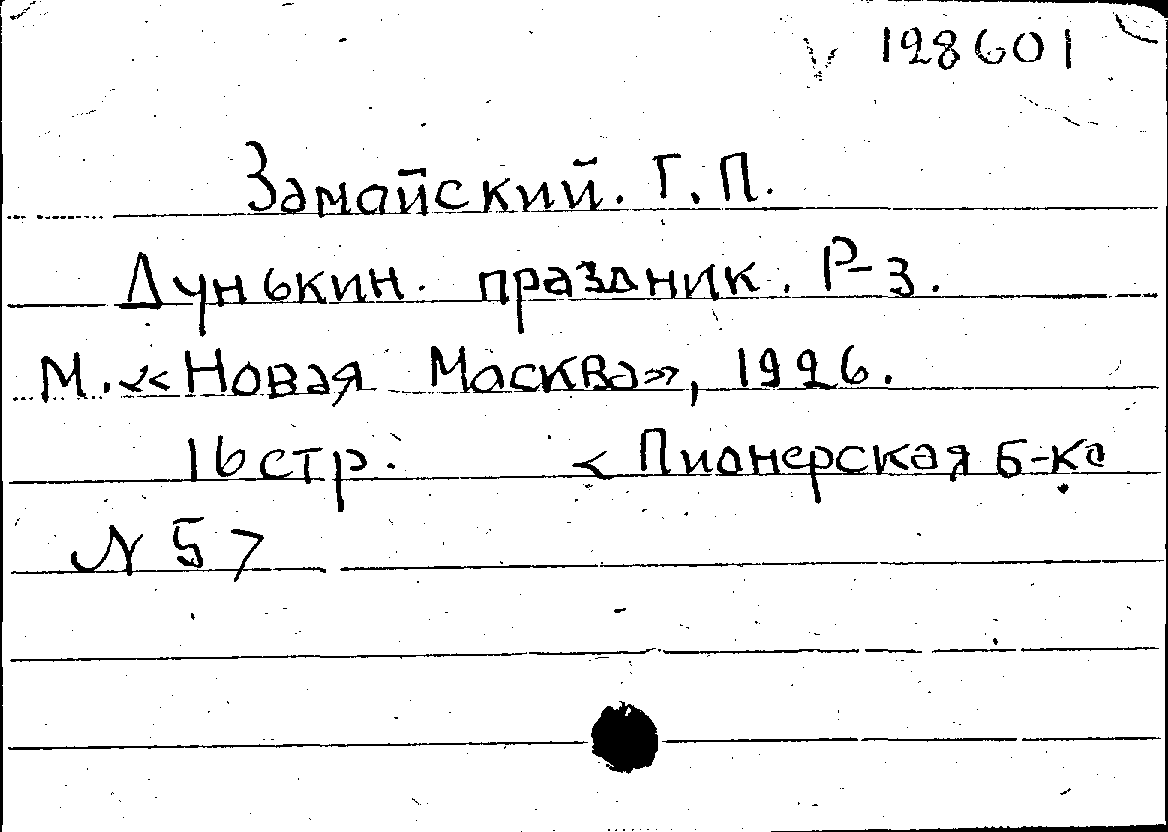 V 128601
Замайский. Г. П.
Дунькин. праздник. Р-з.
М. «Новая Москва», 1926.
16 стр. < Пионерская б-ка
N 5 >